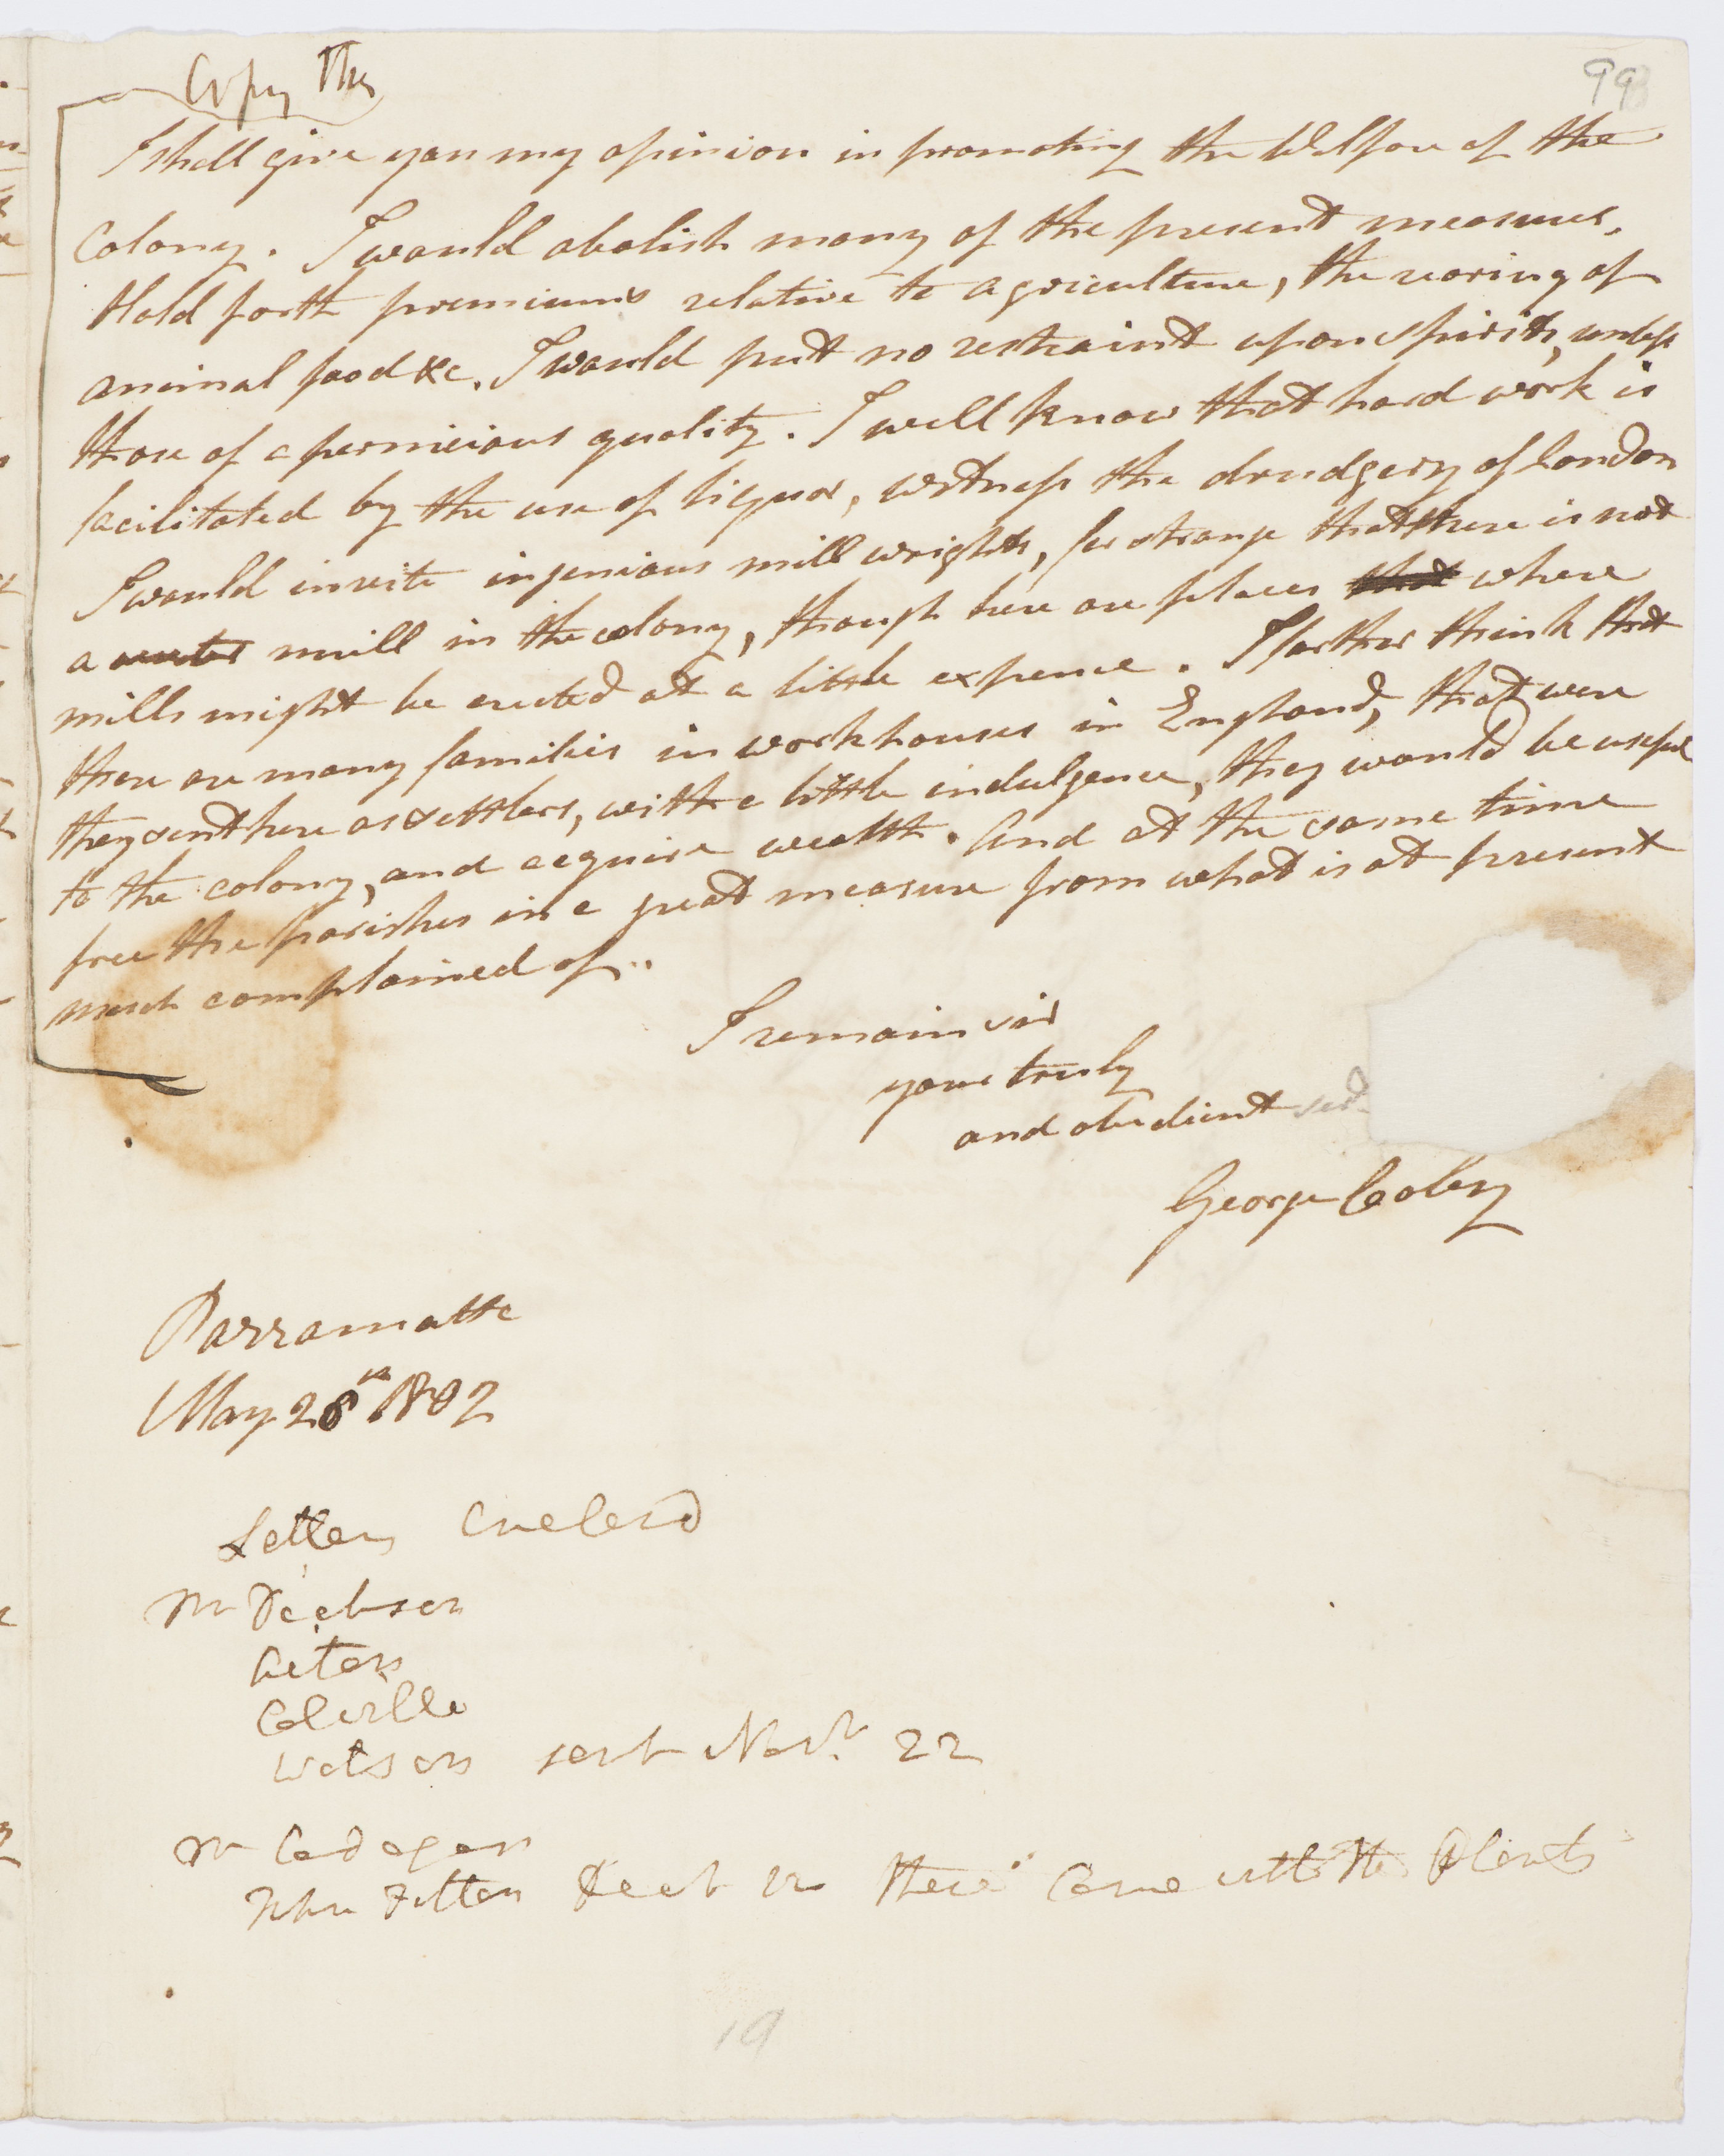 Copy This
99
I shall give you my opinion in promoting the Welfare of the
Colony. I would abolish many of the present measures,
Hold forth premiums relative to agriculture, the rearing of
animal food &c. I would put no restraint upon spirits, unless
those of a pernicious quality. I well know that hard work is
facilitated by the use of liquor, witness the drudgery of London
I would invite ingenious mill wrights, for strange that there is not
a water mill in the colony, though here are places that where
mills might be erected at a little expence. I farther think that
there are many families in workhouses in England, that were
they sent here as settlers, with a little indulgence, they would be useful
to the colony, and acquire wealth. And at the same time
free the parishes in a great measure from what is at present
much complained of..
I remain sir
your truly
and obedient
George Caley
Parramatta
May 28th 1802
Letters Enclosd
Mr Dickson
Aiton
Colville
Watson sent Novr 22
Mr Cadogan
These Came with the Plants
19